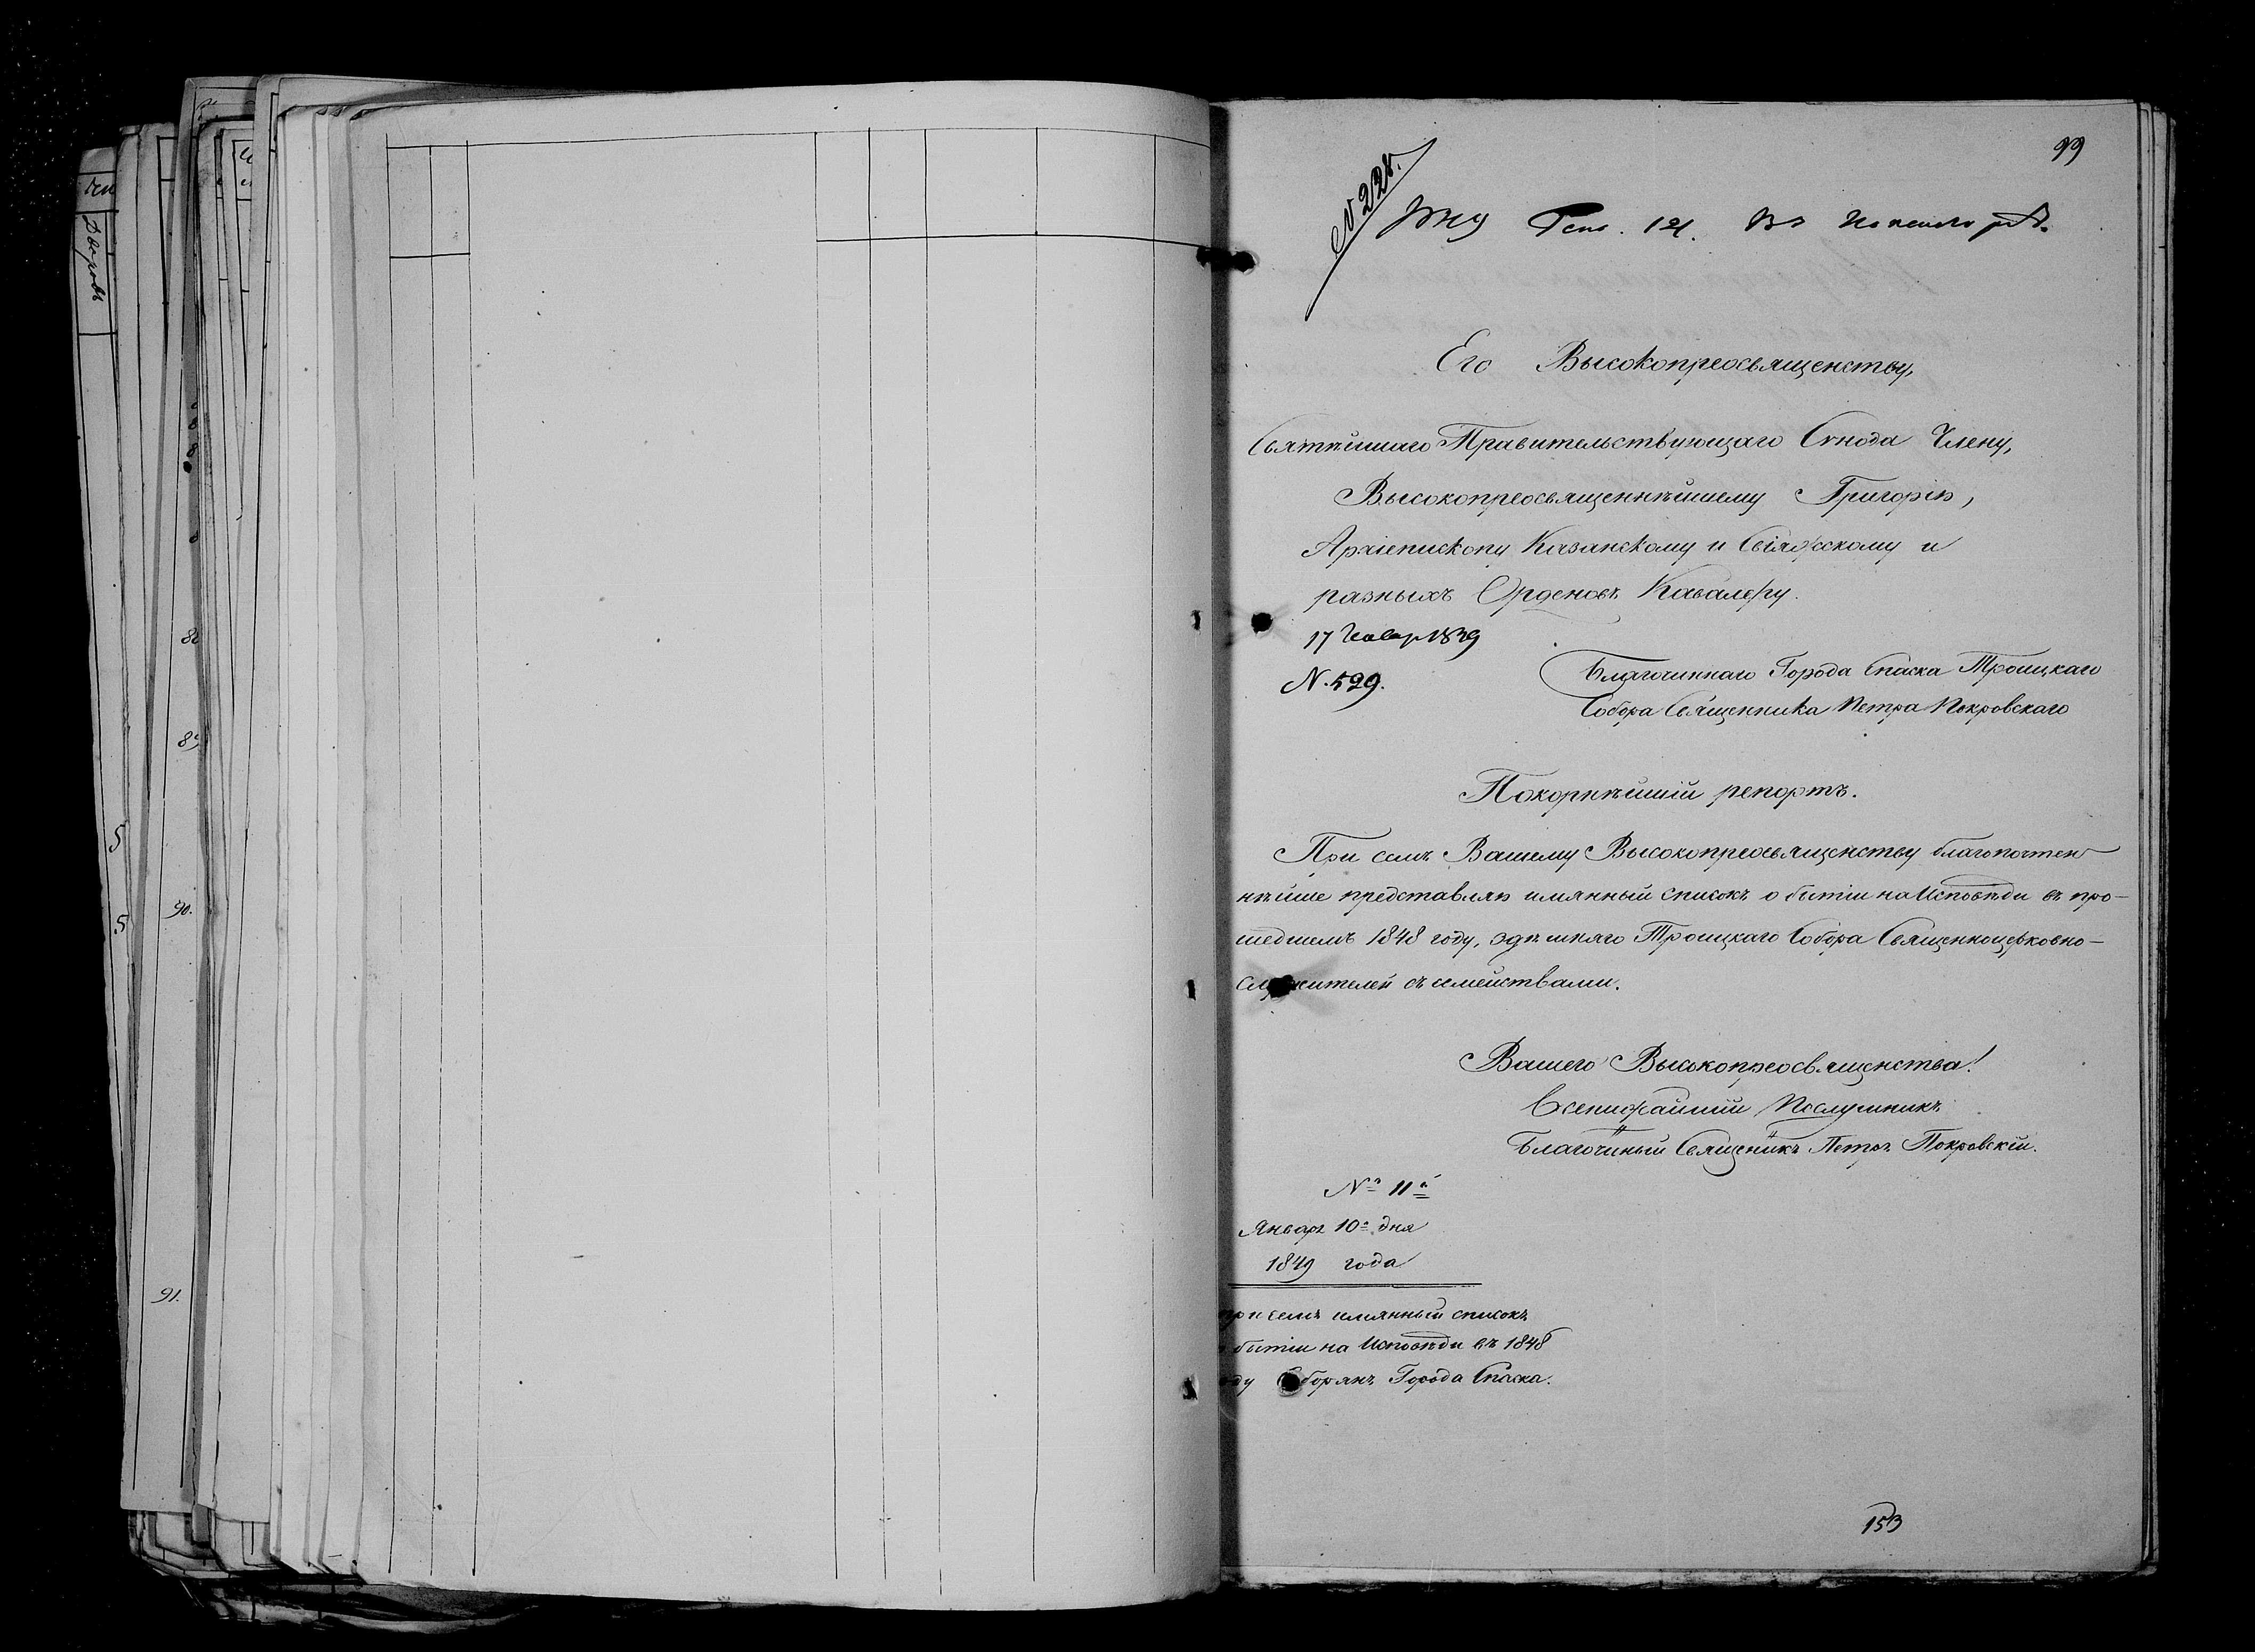 99
№ 228.
1849 Генв. 12. Въ Консисторію.
Его Высокопреосвященству,
Святѣйшаго Правительствующаго Сѵнода Члену,
Высокопреосвященнѣйшему Григорію,
Архіепископу Казанскому и Свіяжскому и
разныхъ Орденовъ Кавалеру.
17 Генвар 1849
N. 529.
Благочиннаго Города Спаска Троицкаго
Собора Священника Петра Покровскаго
Покорнѣйшій репортъ.
При семъ Вашему Высокопреосвященству благопочтен
нѣйше представляю имянный списокъ о бытіи на Исповѣди въ про-
шедшемъ 1848 году, здѣшняго Троицкаго Собора Священноцерковно-
служителей съ семействами.
Вашего Высокопреосвященства!
Всенижайшій Послушникъ
Благочинный Священникъ Петръ Покровскій.
№ 11й
Январ. 10го дня
1849 года
при семъ имянный списокъ
бытіи на Исповѣди въ 1848
оду Соборянъ Города Спаска.
153
82
89
90.
91.
5
5
Дворовъ